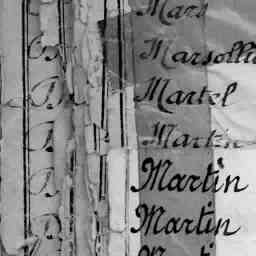 Mars
Marsolli
B Martel
B Martin
B Martin
B Martin